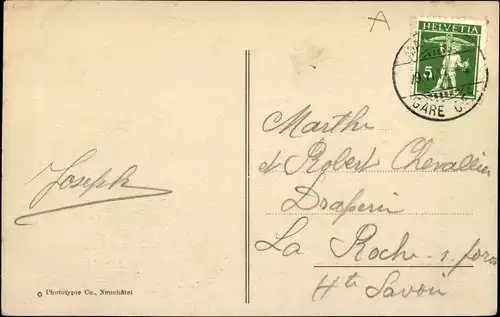 A
HELVETIA
5
GARE
Marthe
et Robert Chevallier
Draperie
La Roche s. foron
Hte Savoie
Joseph
Phototypie Co., Neuchâtel